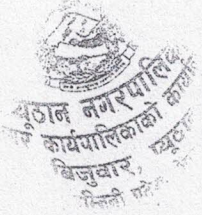 प्यूठान नगरपालिका
नगर कार्यपालिकाको कार्यालय
बिजुवार, प्यूठान